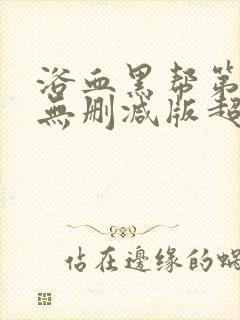 浴血黑帮第
無删减版超
佔在邊缘的蜗